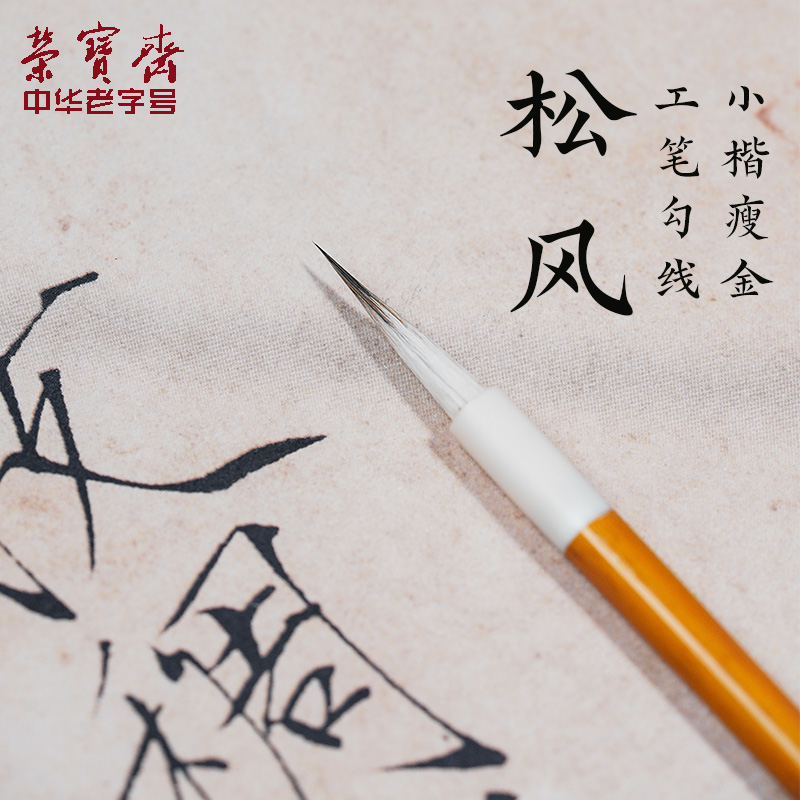 榮寶齋
中华老字号
小楷瘦金
工笔勾线
松风